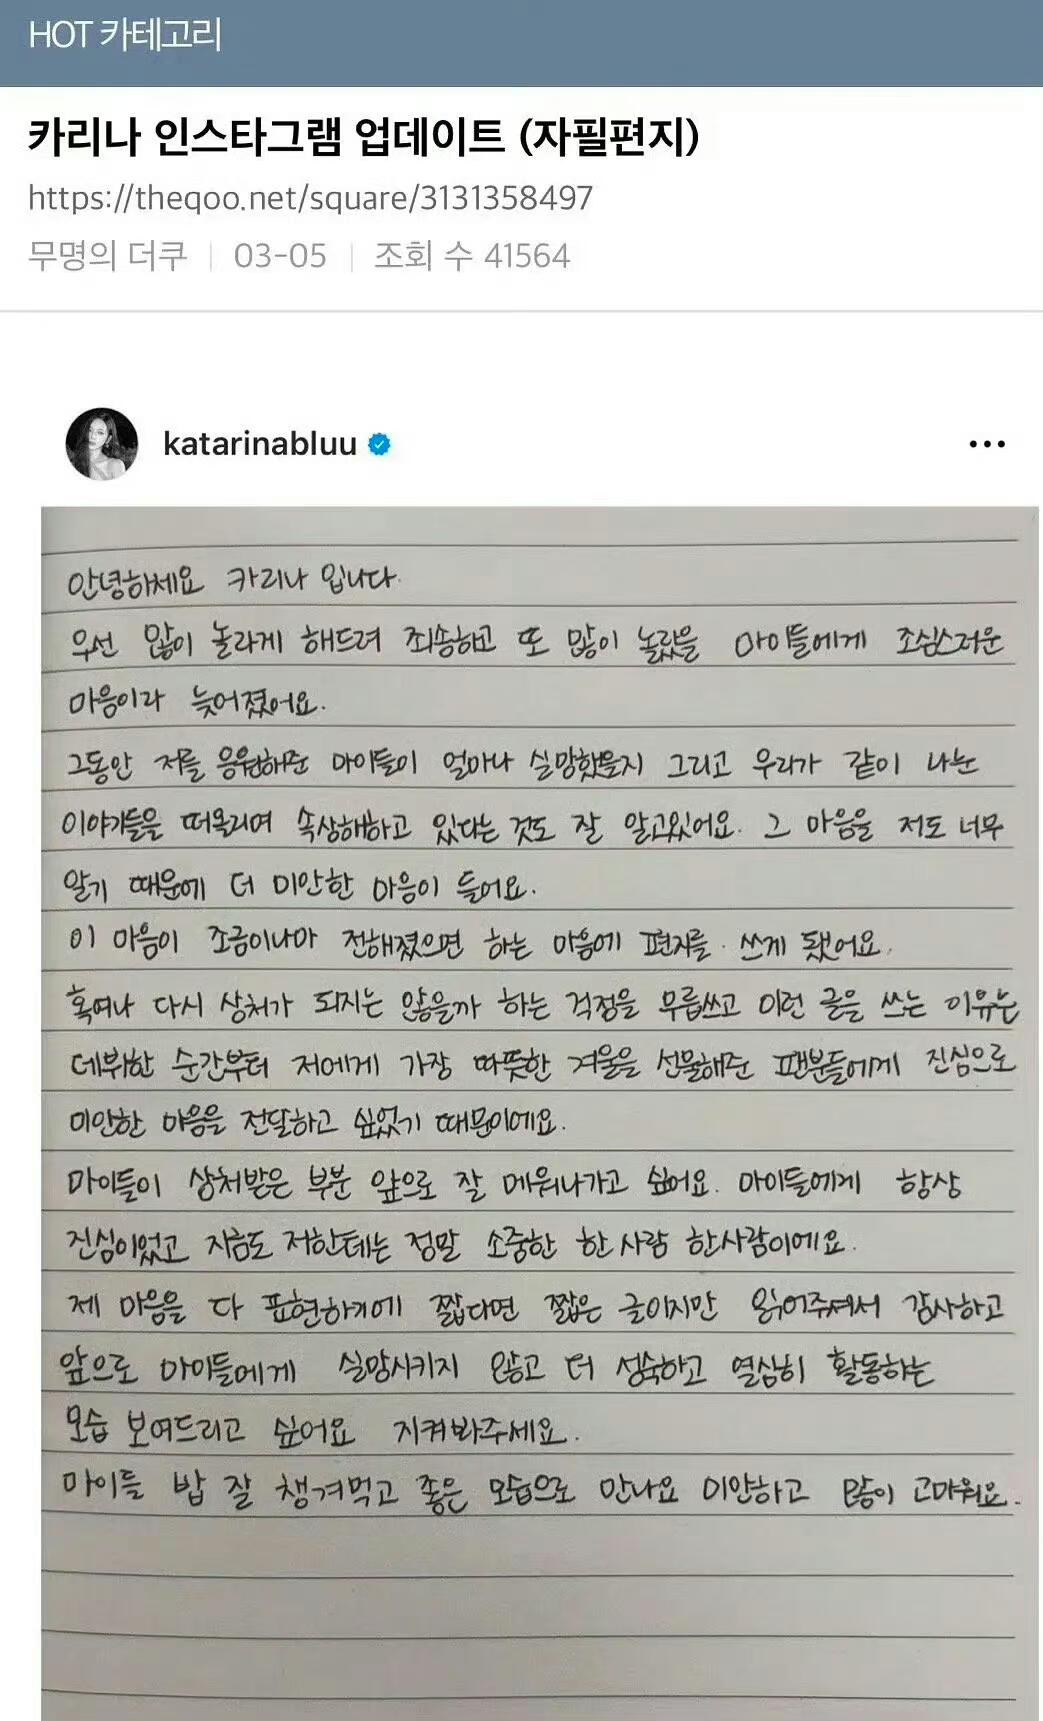 HOT 카테고리
카리나 인스타그램 업데이트 (자필편지)
https://theqoo.net/square/3131358497
무명의 더쿠 | 03-05 | 조회 수 41564
katarinabluu
안녕하세요 카리나 입니다.
우선 많이 놀라게 해드려 죄송하고 또 많이 놀랐을 마이들에게 조심스러운
마음이라 늦어졌어요.
그동안 저를 응원해준 마이들이 얼마나 실망했을지 그리고 우리가 같이 나눈
이야기들을 떠올리며 속상해하고 있다는 것도 잘 알고있어요. 그 마음을 저도 너무
알기 때문에 더 미안한 마음이 들어요.
이 마음이 조금이나마 전해졌으면 하는 마음에 편지를 쓰게 됐어요.
혹여나 다시 상처가 되지는 않을까 하는 걱정을 무릅쓰고 이런 글을 쓰는 이유는
데뷔한 순간부터 저에게 가장 따뜻한 겨울을 선물해준 팬분들에게 진심으로
미안한 마음을 전달하고 싶었기 때문이에요.
마이들이 상처받은 부분 앞으로 잘 메워나가고 싶어요. 마이들에게 항상
진심이었고 지금도 저한테는 정말 소중한 한 사람 한사람이에요.
제 마음을 다 표현하기에 짧다면 짧은 글이지만 읽어주셔서 감사하고
앞으로 마이들에게 실망시키지 않고 더 성숙하고 열심히 활동하는
모습 보여드리고 싶어요 지켜봐주세요.
마이들 밥 잘 챙겨먹고 좋은 모습으로 만나요 미안하고 많이 고마워요.